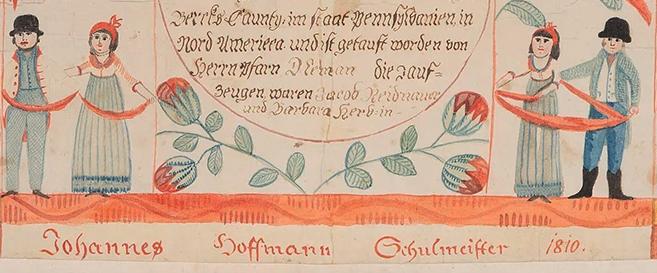 Berks County im staat Pennsylvanien in
Nord America und ist getauft worden von
Herrn Pfarn die Tauf-
zeugen waren Jacob
und Barbara Herb-in-
Johannes Hoffmann Schulmeister 1810.